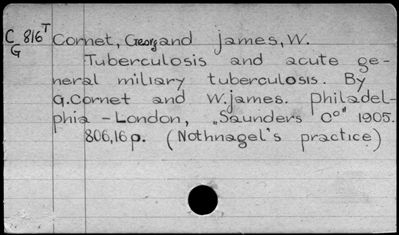 C 816T Cornet, Georg and James, W.
G
Tuberculosis and acute ge-
neral miliary tuberculosis. By
G.Cornet and W.James. Philadel-
phia - London, „Saunders Co" 1905.
806,16 p. (Nothnagel's practice)